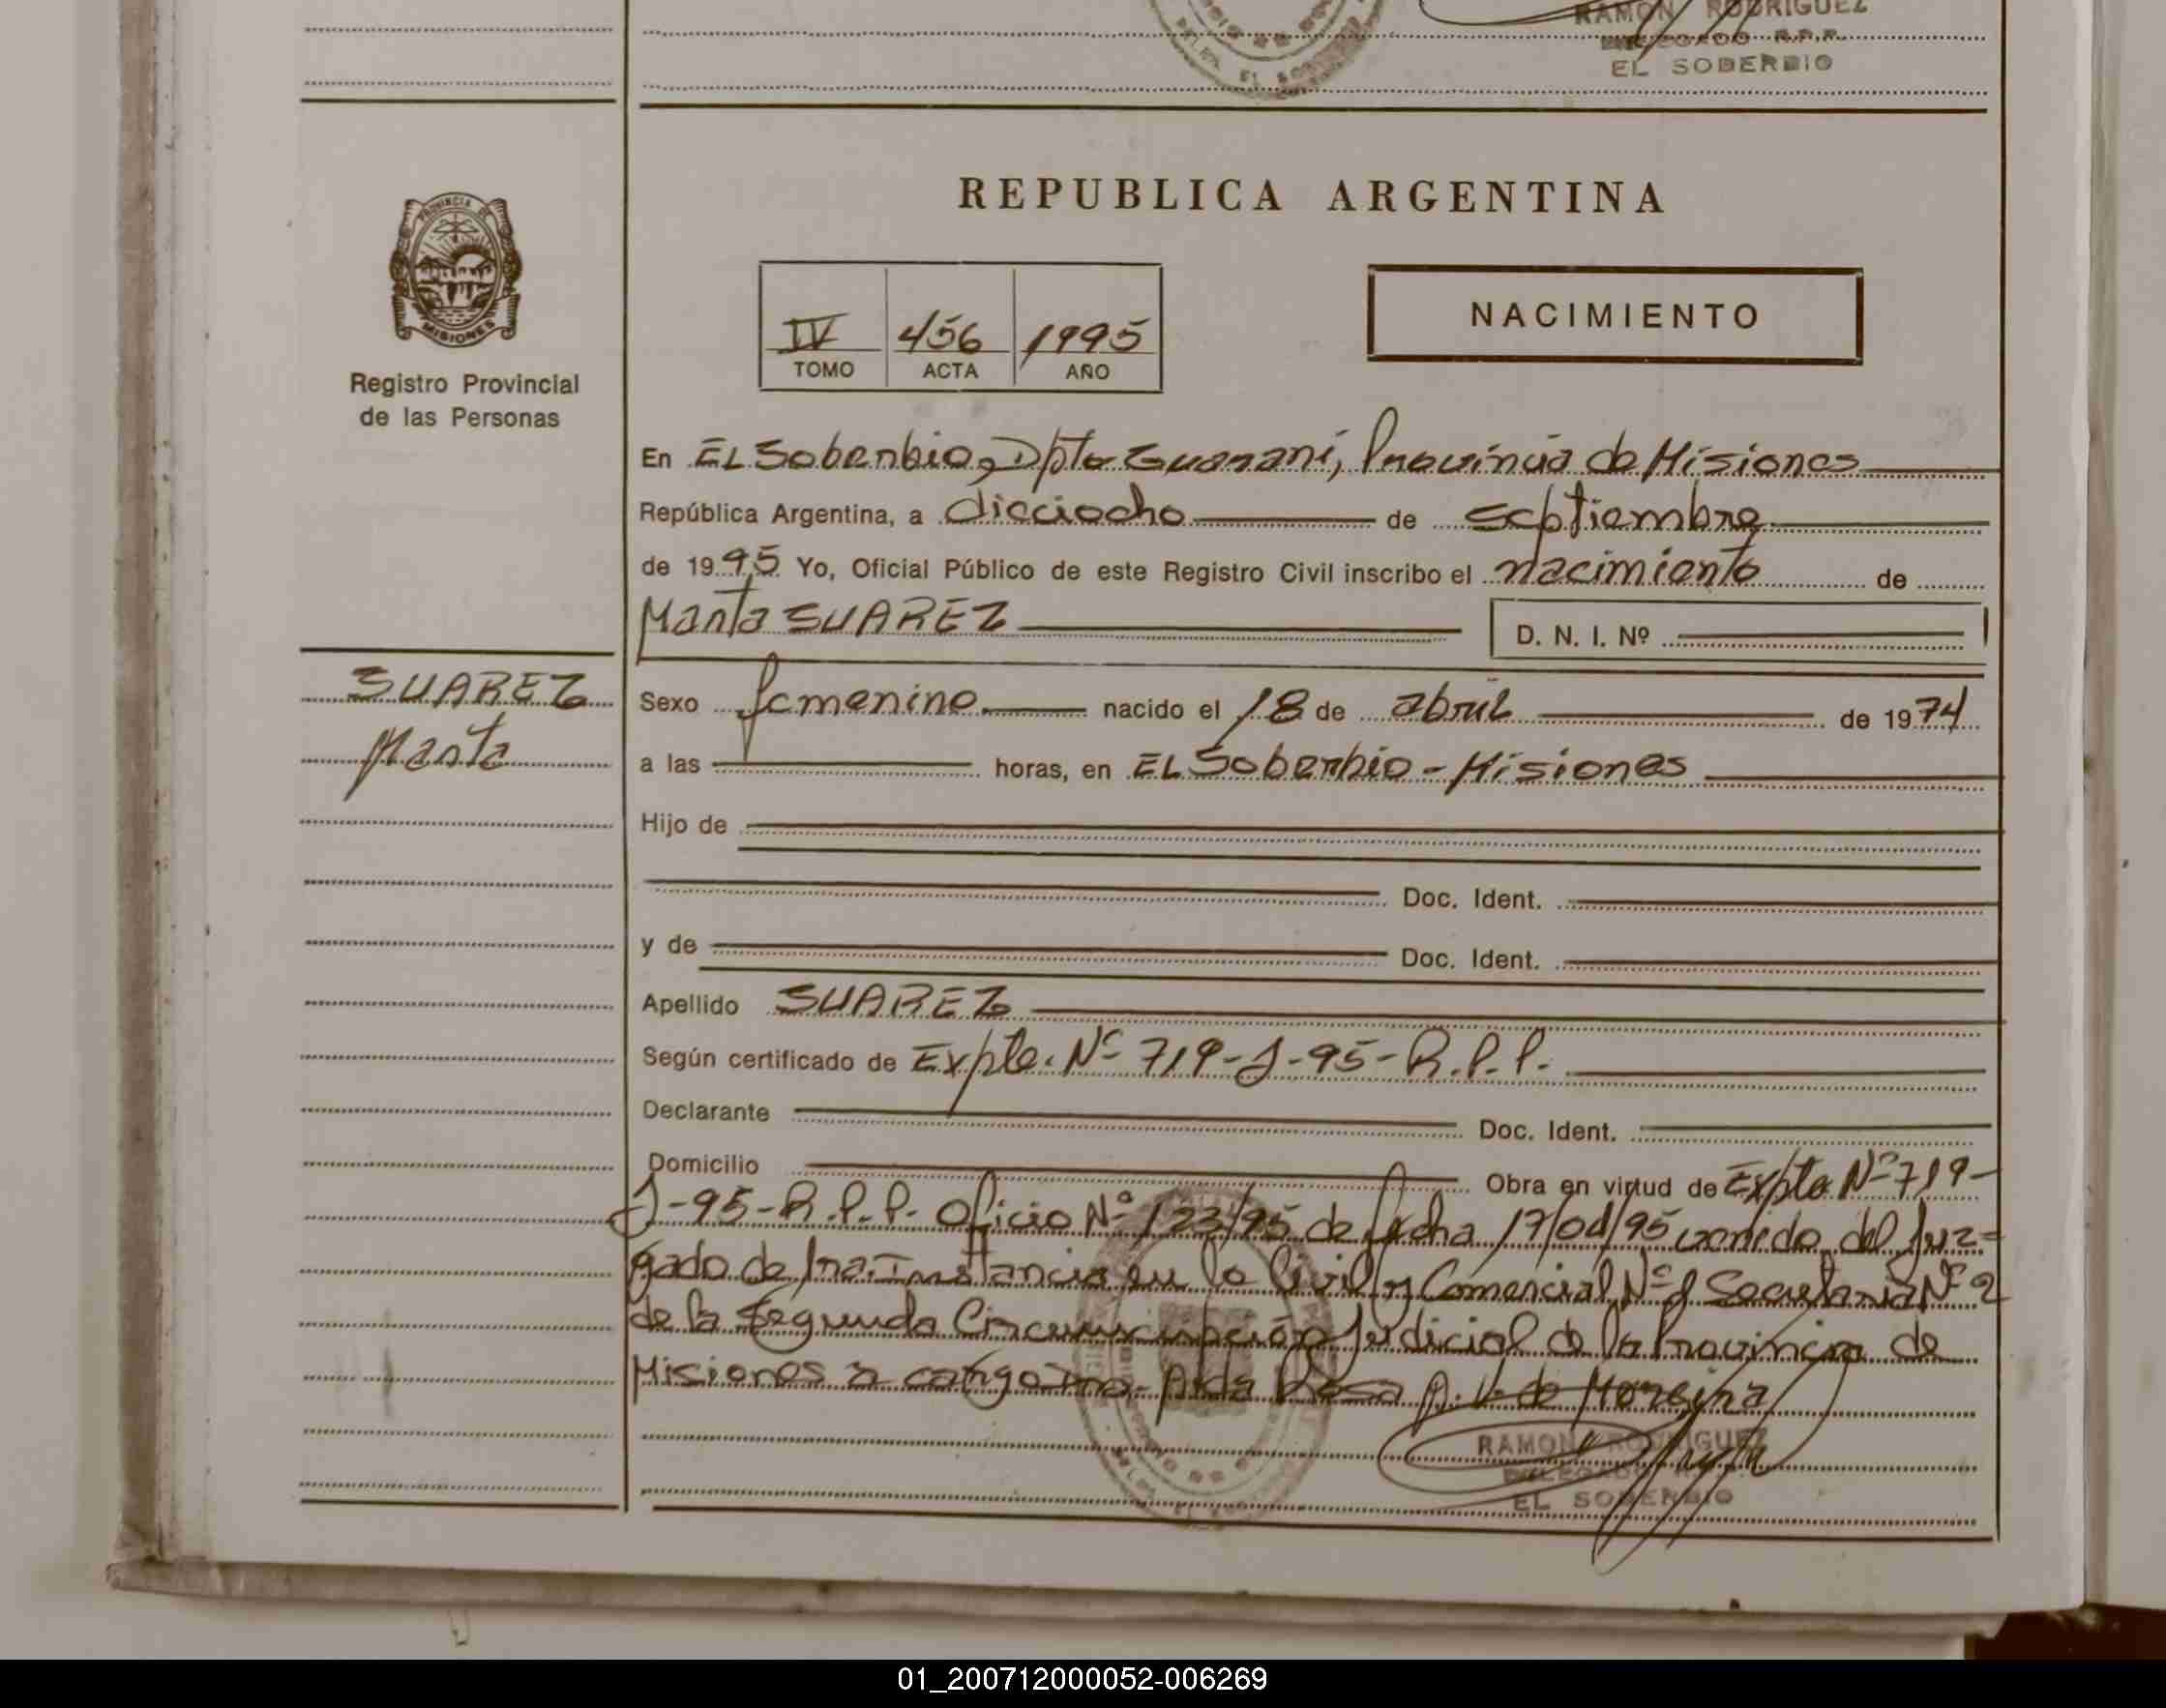 RAMON RODRIGUEZ
DELEGADO R.P.P.
EL SOBERBIO
REPUBLICA ARGENTINA
PROVINCIA DE
MISIONES
Registro Provincial
de las Personas
IV 456 1995
TOMO ACTA AÑO
NACIMIENTO
En EL Soberbio, Dpto Guaraní, Provincia de Misiones
República Argentina, a dieciocho de septiembre
de 1995 Yo, Oficial Público de este Registro Civil inscribo el nacimiento de
Marta SUAREZ D. N. I. Nº
SUAREZ
Marta
Sexo femenino nacido el 18 de abril de 1974
a las horas, en EL Soberbio - Misiones
Hijo de
Doc. Ident.
y de Doc. Ident.
Apellido SUAREZ
Según certificado de Expte. Nº 719-J-95-R.P.P.
Declarante Doc. Ident.
Domicilio Obra en virtud de Expte Nº 719-
J-95-R.P.P. Oficio Nº 123/95 de fecha 17/04/95 venido del Juz=
gado de 1ra. Instancia en lo Civil y Comercial Nº Secretaria Nº 2
de la Segunda Circunscripción Judicial de la Provincia de
Misiones a cargo Dra. Aida Rosa A. V. de Moreira
RAMON RODRIGUEZ
DELEGADO
EL SOBERBIO
01_200712000052-006269